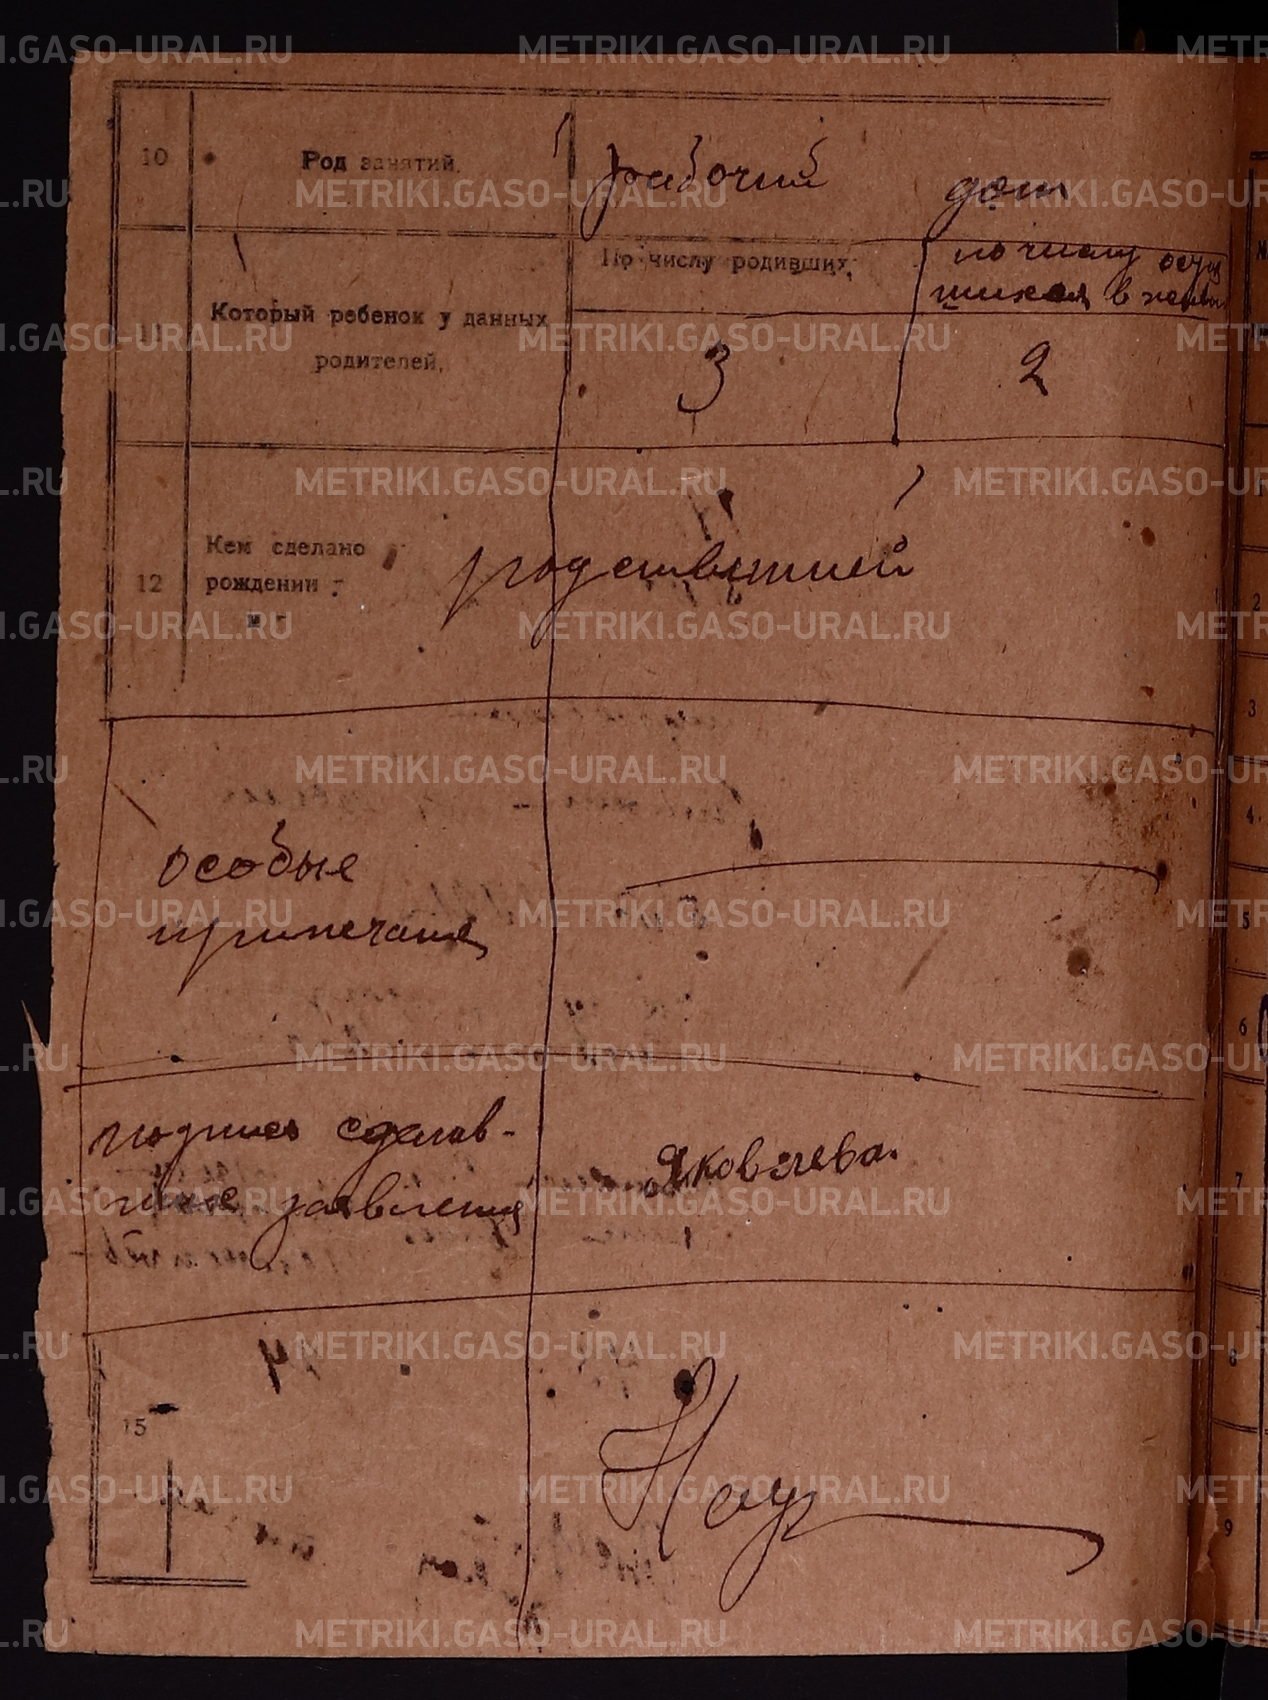 METRIKI.GASO-URAL.RU
10 Род занятий. рабочий дом
По числу родивших. по числу остав
шихся в живых
11 Который ребенок у данных
родителей. 3 2
Кем сделано
12 рождении родившией
особые
примечания
подпись сделав-
шие заявления Яковлева.
15